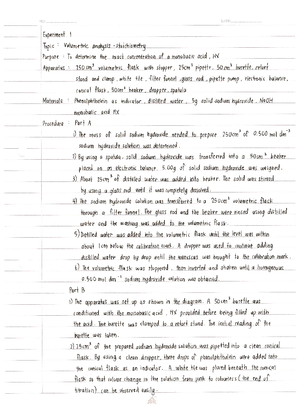 Experiment 1
Topic : Volumetric analysis : stoichiometry
Purpose : To determine the exact concentration of a monobasic acid, HX
Apparatus : 250 cm³ volumetric flask with stopper, 25cm³ pipette, 50cm³ burette, retort
stand and clamp, white tile, filter funnel, glass rod, pipette pump, electronic balance,
conical flask, 50cm³ beaker, dropper, spatula
Materials : Phenolphthalein as indicator, distilled water, 5g solid sodium hydroxide, NaOH
monobasic acid HX
Procedure : Part A
1) The mass of solid sodium hydroxide needed to prepare 250cm³ of 0.500 mol dm⁻³
sodium hydroxide solution was determined.
2) By using a spatula, solid sodium hydroxide was transferred into a 50cm³ beaker
placed on an electronic balance. 5.00g of solid sodium hydroxide was weighed.
3) About 25cm³ of distilled water was added into beaker. The solid was stirred
by using a glass rod until it was completely dissolved.
4) The sodium hydroxide solution was transferred to a 250cm³ volumetric flask
through a filter funnel. The glass rod and the beaker were rinsed using distilled
water and the washing was added to the volumetric flask.
5) Distilled water was added into the volumetric flask until the level was within
about 1cm below the calibration mark. A dropper was used to continue adding
distilled water drop by drop until the meniscus was brought to the calibration mark.
6) The volumetric flask was stoppered, then inverted and shaken until a homogenous
0.500 mol dm⁻³ sodium hydroxide solution was obtained.
Part B
1) The apparatus was set up as shown in the diagram. A 50cm³ burette was
conditioned with the monobasic acid, HX provided before being filled up with
the acid. The burette was clamped to a retort stand. The initial reading of the
burette was taken.
2) 25cm³ of the prepared sodium hydroxide solution was pipetted into a clean conical
flask. By using a clean dropper, three drops of phenolphthalein were added into
the conical flask as an indicator. A white tile was placed beneath the conical
flask so that colour change in the solution from pink to colourless (the end of
titration) can be observed easily.